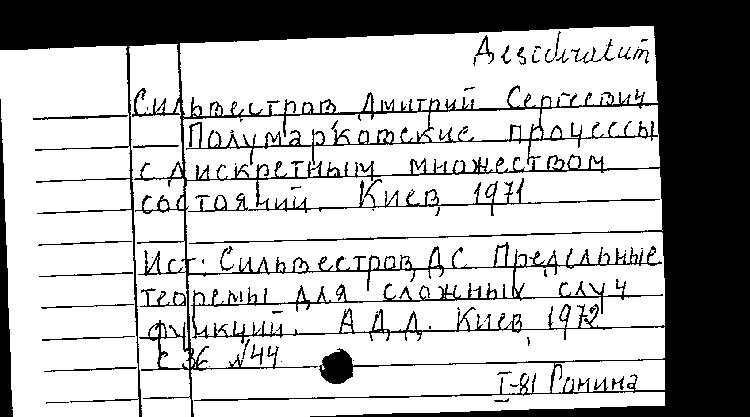 Desideratum
Сильвестров Дмитрий Сергеевич
Полумарковские процессы
с дискретным множеством
состояний. Киев, 1971
Ист: Сильвестров, ДС Предельные
теоремы для сложных случ
функций. А Д Д. Киев, 1972
с 36 №44
I-81 Ронина